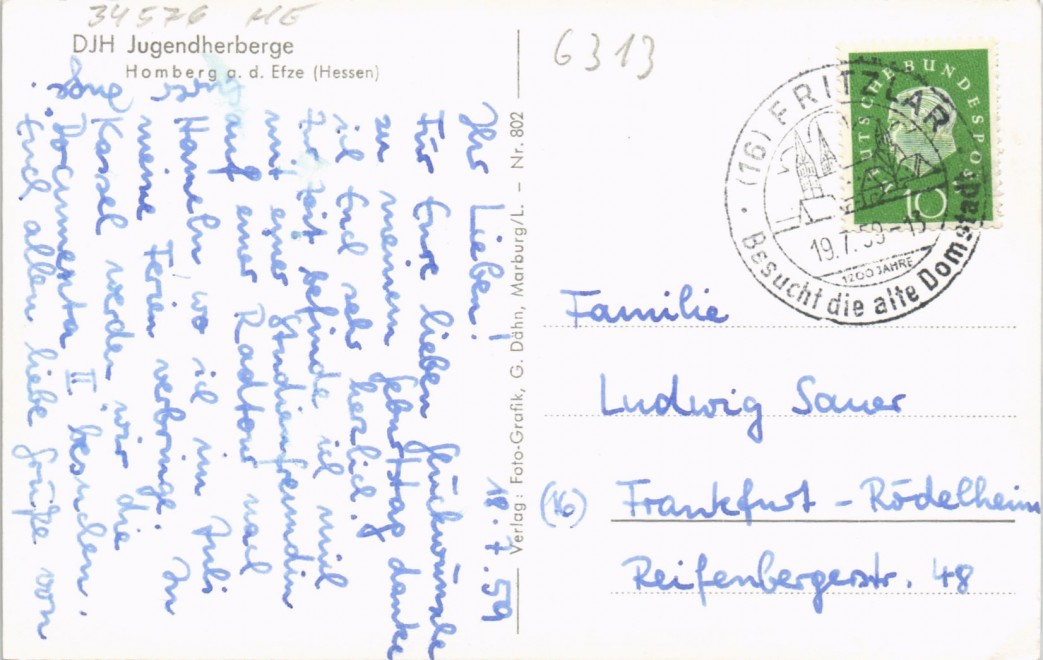 34576 ME
DJH Jugendherberge
Homberg a. d. Efze (Hessen)
18.7.59
Ihr Lieben!
Für Eure lieben Glückwünsche
zu meinem Geburtstag danke
ich Euch sehr herzlich.
Zur Zeit befinde ich mich
mit einer Studienfreundin
auf einer Radtour nach
Hameln wo ich im Juli
meine Ferien verbringe. In
Kassel werden wir die
Documenta II besuchen.
Euch allen liebe Grüße von
Verlag: Foto-Grafik, G. Dähn, Marburg/L. – Nr. 802
6313
(16) FRITZLAR
19.7.59-13
1200 JAHRE
Besucht die alte Domstadt
DEUTSCHE BUNDESPOST
10
Familie
Ludwig Sauer
(16) Frankfurt - Rödelheim
Reifenbergerstr. 48